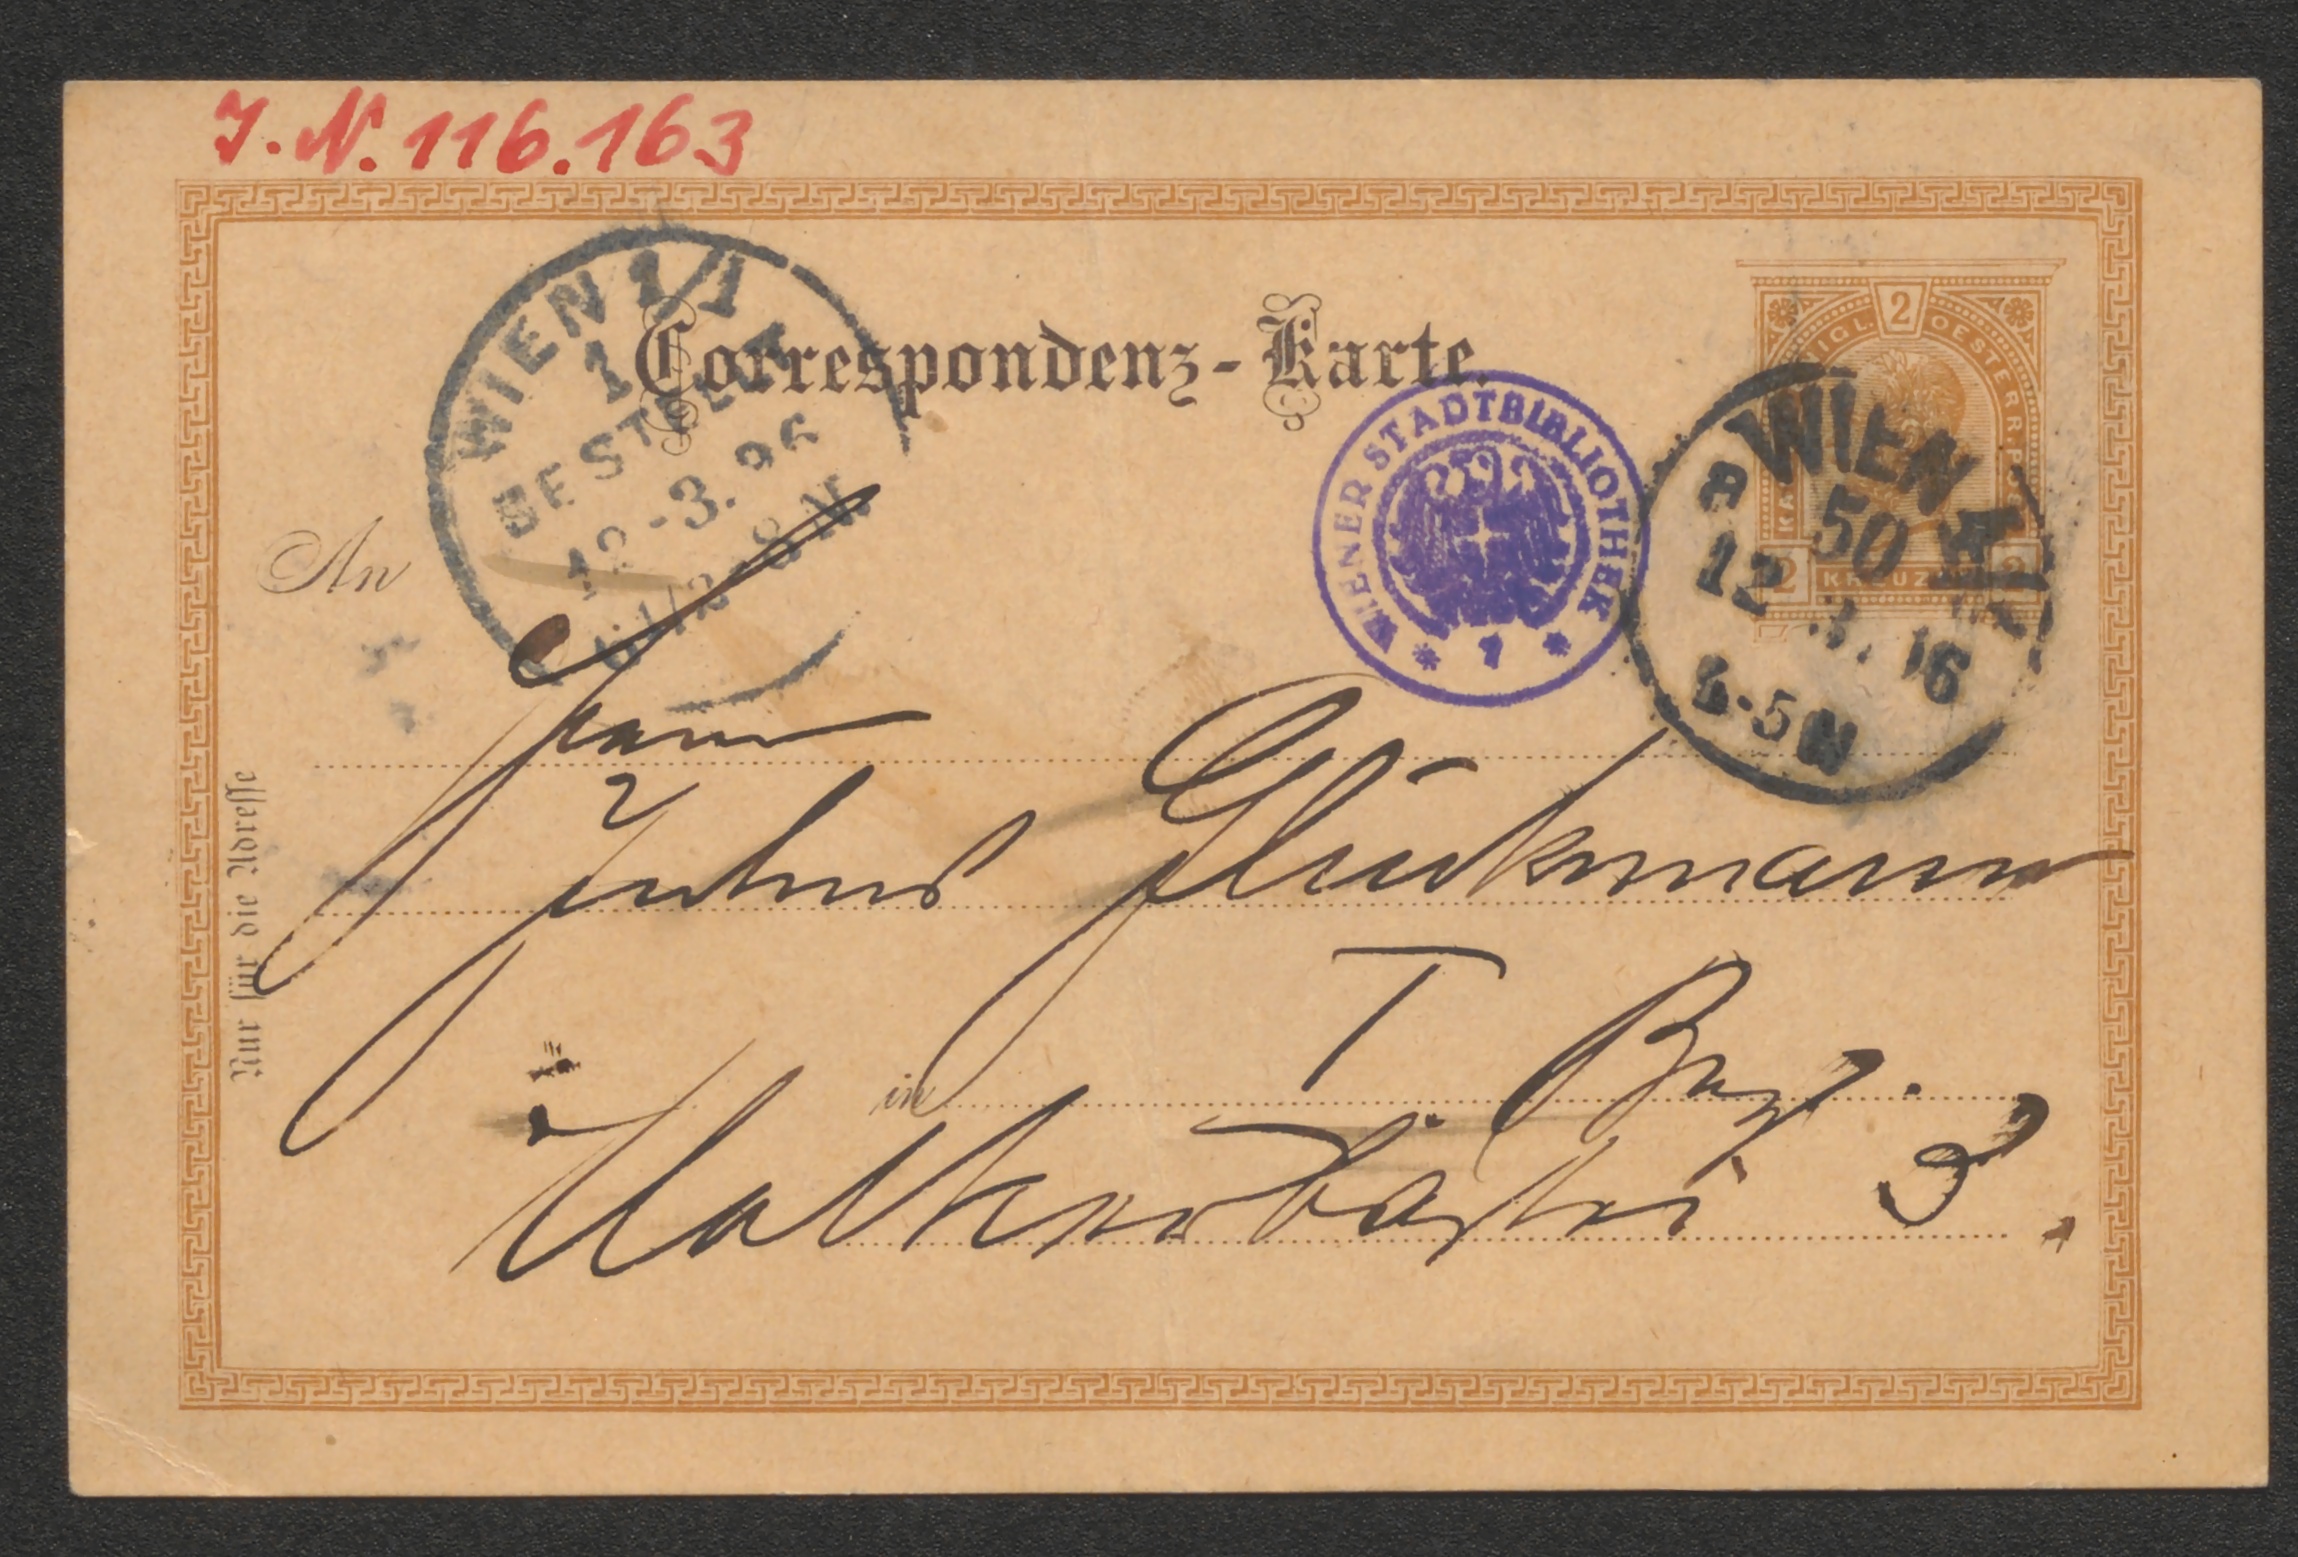 J. N. 116.163
WIEN 1/1
1
BESTELLT
12-3.96
6 1/2-8N
Correspondenz-Karte.
2
KREUZER
WIENER STADTBIBLIOTHEK
* 7 *
WIEN
50
12 3. 96
4-5N
An
Herrn
Julius Glücksmann
in
I Bez.
Mölkerbastei 3
Nur für die Adresse